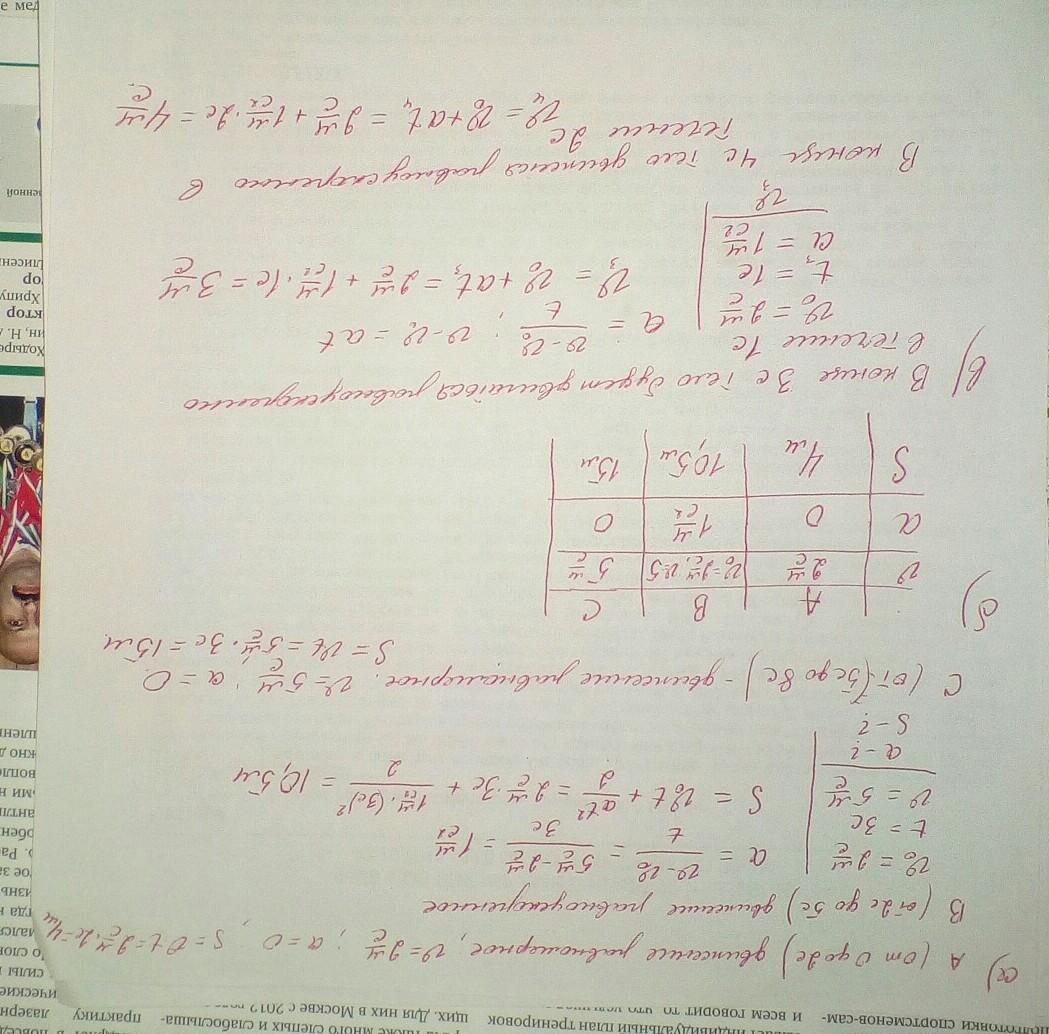 а) А (от 0 до 2с) движение равномерное, v=2 м/с ; a=0, S=vt=2 м/с·2с=4м
В (от 2с до 5с) движение равноускоренное
v₀ = 2 м/с
t = 3с
v = 5 м/с
a - ?
S - ?
a = (v-v₀)/t = (5 м/с - 2 м/с)/3с = 1 м/с²
S = v₀t + at²/2 = 2 м/с·3с + (1 м/с²·(3с)²)/2 = 10,5м
С (от 5с до 8с) - движение равномерное. v=5 м/с ; a=0
S = vt = 5 м/с·3с = 15м
б)
А В С
v 2 м/с v₀=2 м/с, v=5 5 м/с
a 0 1 м/с² 0
S 4м 10,5м 15м
в) В конце 3с тело будет двигаться равноускоренно
в течение 1с
v₀ = 2 м/с
t₃ = 1с
a = 1 м/с²
v₃
a = (v-v₀)/t ; v-v₀ = at
v₃ = v₀+at₃ = 2 м/с + 1 м/с²·1с = 3 м/с
В конце 4с тело движется равноускоренно в
течение 2с
v₄ = v₀+at₄ = 2 м/с + 1 м/с²·2с = 4 м/с.